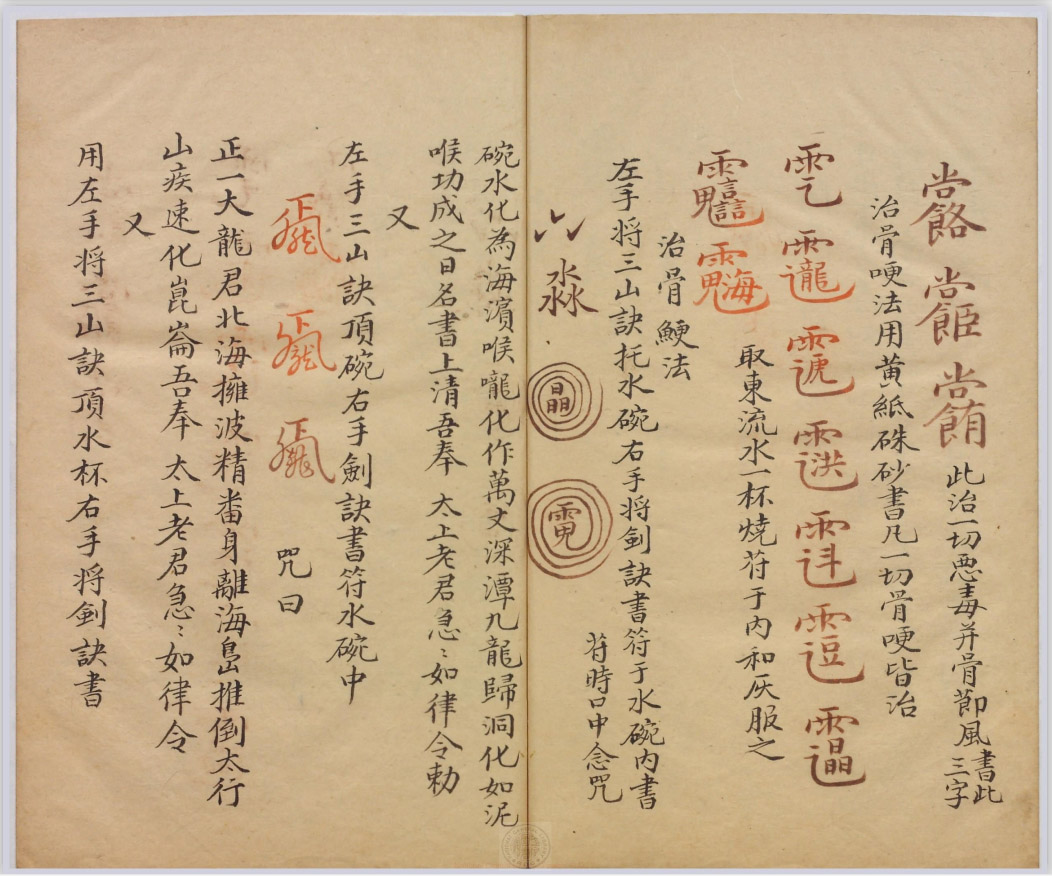 此治一切惡毒并骨節風書此三字
治骨哽法用黃紙硃砂書凡一切骨哽皆治
取東流水一杯燒符于內和灰服之
治骨鯁法
左手將三山訣托水碗右手將劍訣書符于水碗內書
符時口中念咒
淼
晶
碗水化為海濱喉嚨化作萬丈深潭九龍歸洞化如泥
喉功成之日名書上清吾奉太上老君急〻如律令勅
又
左手三山訣頂碗右手劍訣書符水碗中
咒曰
正一大龍君北海擁波精畨身離海島推倒太行
山疾速化崑崙吾奉太上老君急〻如律令
又
用左手將三山訣頂水杯右手將劍訣書